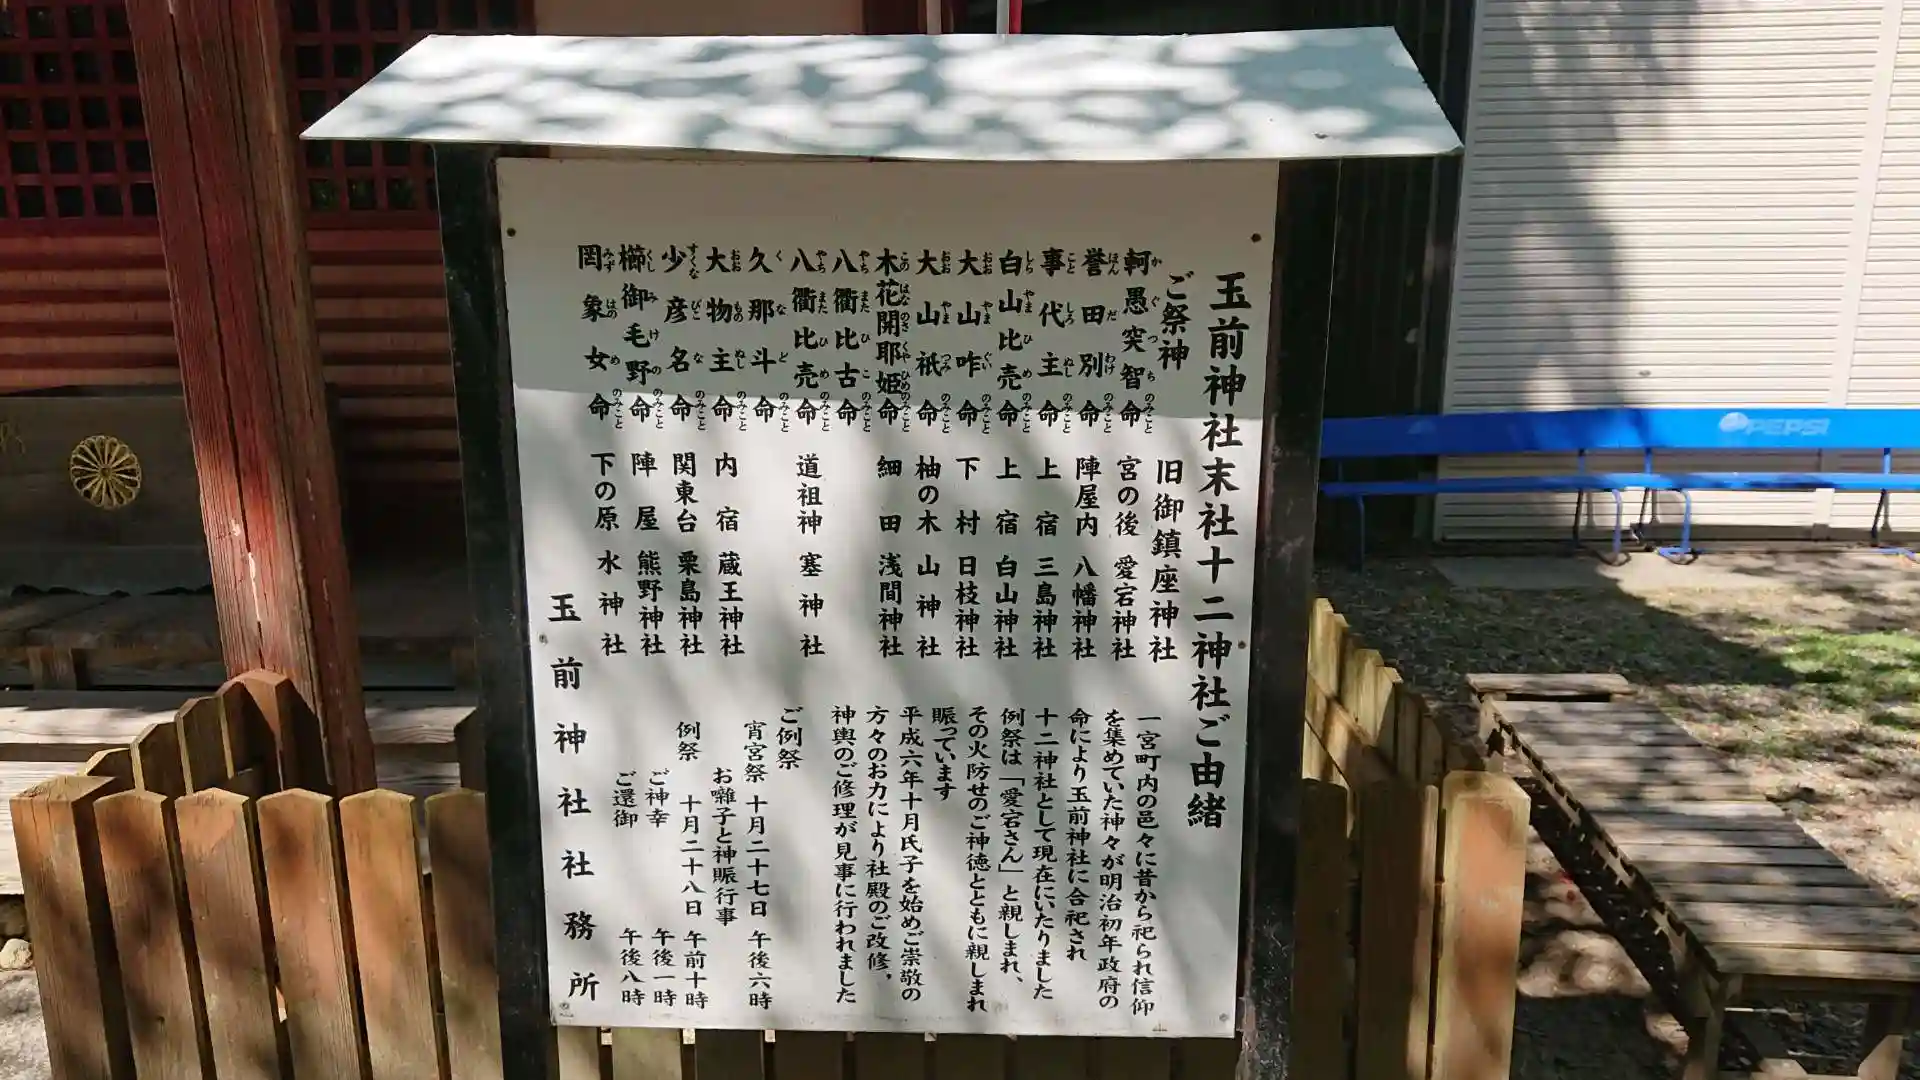 玉前神社末社十二神社ご由緒
ご祭神
旧御鎮座神社
軻愚突智命 宮の後 愛宕神社
誉田別命 陣屋内 八幡神社
事代主命 上宿 三島神社
白山比売命 上宿 白山神社
大山咋命 下村 日枝神社
大山祇命 柚の木 山神社
木花開耶姫命 細田 浅間神社
八衢比古命
八衢比売命 道祖神 塞神社
久那斗命
大物主命 内宿 蔵王神社
少彦名命 関東台 粟島神社
櫛御毛野命 陣屋 熊野神社
罔象女命 下の原 水神社
一宮町内の邑々に昔から祀られ信仰
を集めていた神々が明治初年政府の
命により玉前神社に合祀され
十二神社として現在にいたりました
例祭は「愛宕さん」と親しまれ、
その火防せのご神徳とともに親しまれ
賑っています
平成六年十月氏子を始めご崇敬の
方々のお力により社殿のご改修，
神輿のご修理が見事に行われました
ご例祭
宵宮祭 十月二十七日 午後六時
お囃子と神賑行事
例祭 十月二十八日 午前十時
ご神幸 午後一時
ご還御 午後八時
玉前神社社務所
PEPSI